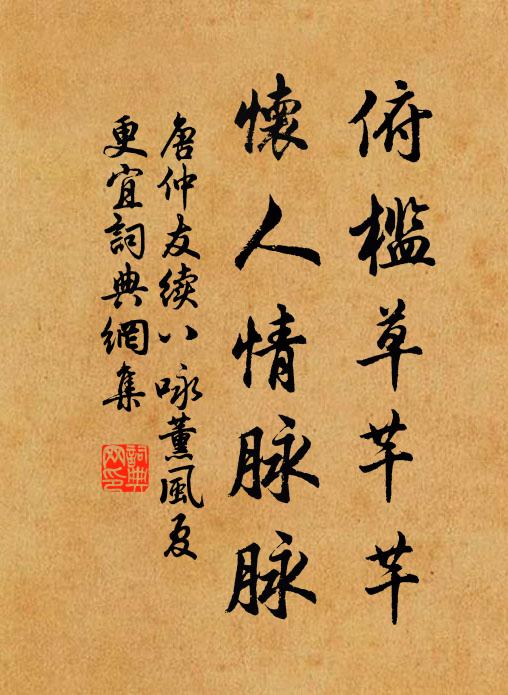 俯檻草芊芊
懷人情脉脉
唐仲友續八咏薰風夏
更宜詞典網集
詞典
網印